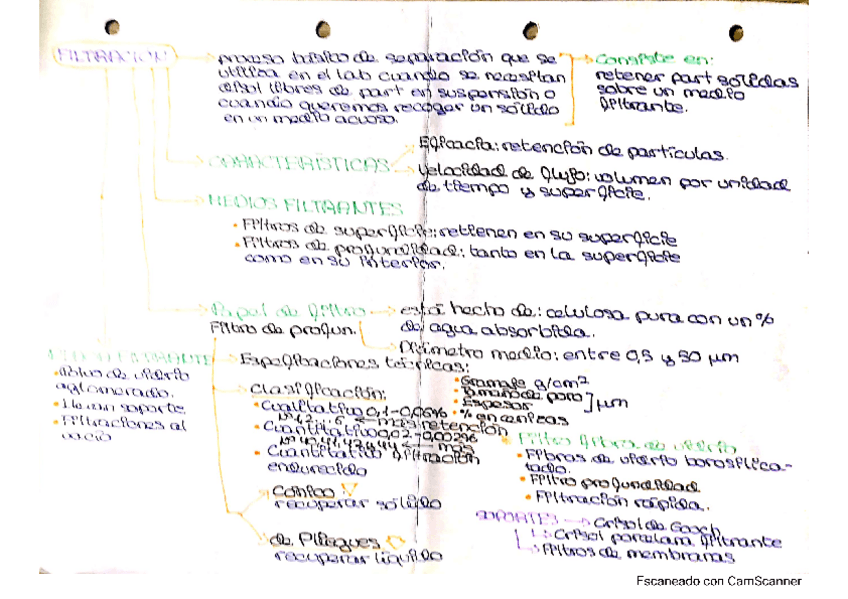 FILTRACIÓN
proceso básico de separación que se
utiliza en el lab cuando se necesitan
disol libres de part en suspensión o
cuando queremos recoger un sólido
en un medio acuoso.
Consiste en:
retener part sólidas
sobre un medio
filtrante.
CARACTERÍSTICAS
Eficacia: retención de partículas.
Velocidad de flujo: volumen por unidad
de tiempo y superficie.
MEDIOS FILTRANTES
• Filtros de superficie: retienen en su superficie
• Filtros de profundidad: tanto en la superficie
como en su interior.
Papel de filtro
Filtro de profun.
está hecho de: celulosa pura con un %
de agua absorbida.
Diámetro medio: entre 0,5 y 50 µm
Especificaciones técnicas:
• Gramaje g/cm²
• Tamaño de poro
• Espesor
] µm
• % en cenizas
Clasificación:
• Cualitativo 0,1-0,06%
más retención
• Cuantitativo 0,02-0,002%
más
filtración
• Cuantitativo
endurecido
Cónico
recuperar sólido
de Pliegues
recuperar líquido
FILTRANTE
• Polvo de vidrio
aglomerado.
• Llevan soporte
• Filtraciones al
vacío
Filtro fibra de vidrio
• Fibras de vidrio borosilica-
tado.
• Filtro profundidad
• Filtración rápida.
SOPORTES
Crisol de Gooch
Crisol porcelana filtrante
Filtros de membranas
Escaneado con CamScanner